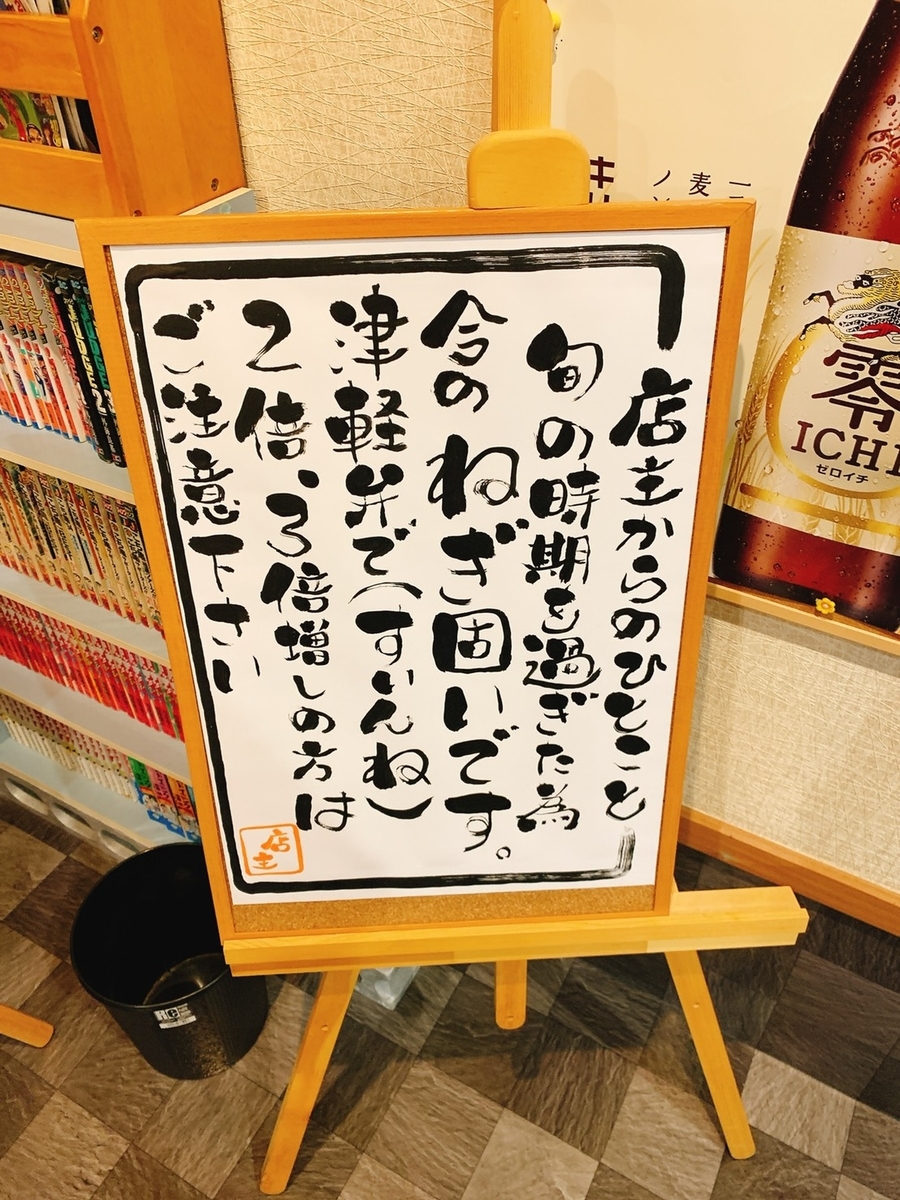 店主からのひとこと
旬の時期を過ぎた為
今のねぎ固いです。
津軽弁で(すいんね)
2倍、3倍増しの方は
ご注意下さい
店主
零
ICHI
ゼロイチ
一
麦
ノ
キ